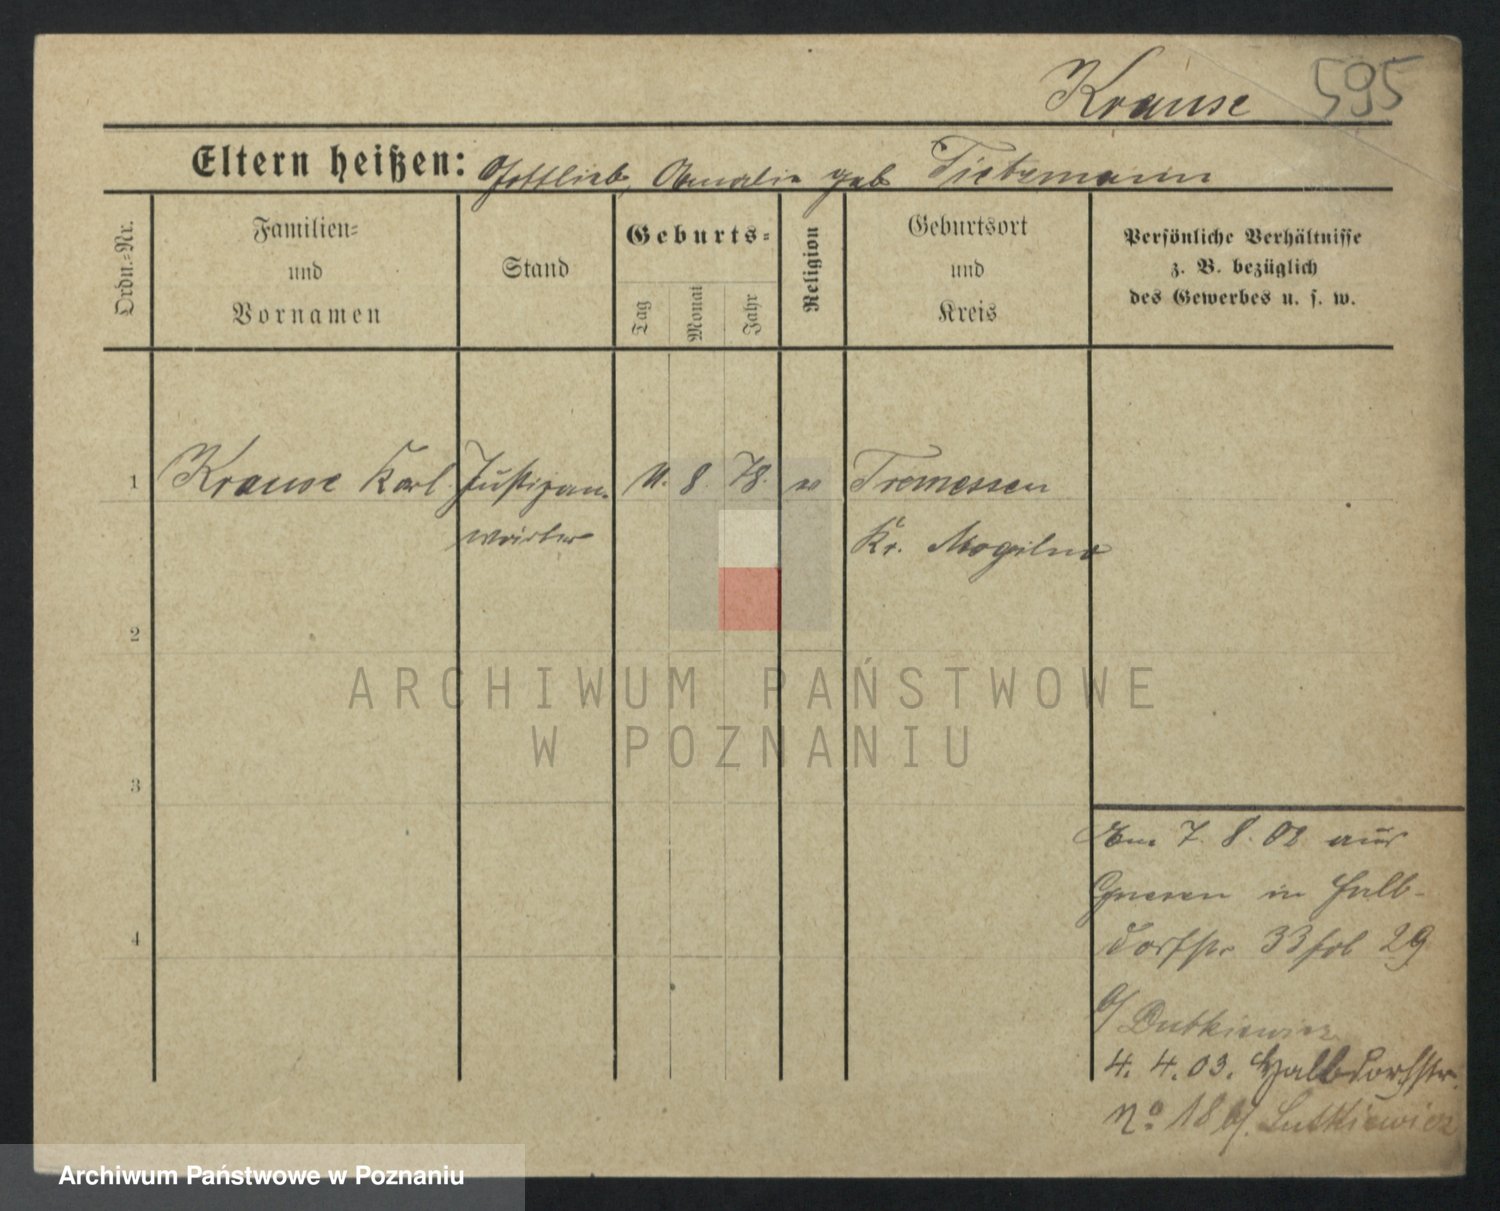 Krause 595
Eltern heißen: Gottlieb, Amalie geb Tietzmann
Ordn.-Nr.
Familien-
und
Vornamen
Stand
Geburts-
Tag
Monat
Jahr
Religion
Geburtsort
und
Kreis
Persönliche Verhältnisse
z. B. bezüglich
des Gewerbes u. s. w.
1 Krause Karl Justizan- 11. 8. 78. ev Tremessen
wärter Kr. Mogilno
2
3
4
Am 7. 8. 02 aus
Gnesen in Halb-
dorfstr 33 fol 29
b/ Dutkiewicz
4. 4. 03. Halbdorfstr.
No. 18 b/. Lutkiewicz
ARCHIWUM PAŃSTWOWE
W POZNANIU
Archiwum Państwowe w Poznaniu